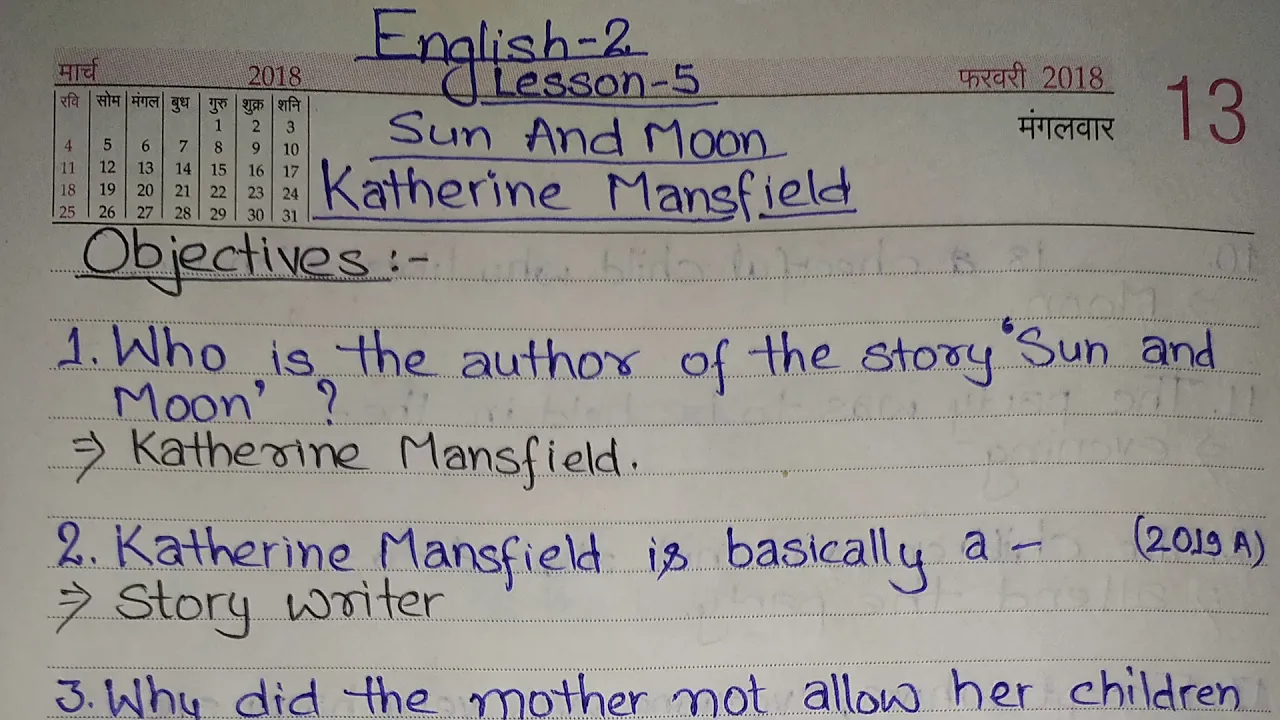 English-2
मार्च 2018 Lesson-5 फरवरी 2018 13
रवि सोम मंगल बुध गुरु शुक्र शनि
मंगलवार
1 2 3
Sun And Moon
4 5 6 7 8 9 10
11 12 13 14 15 16 17
18 19 20 21 22 23 24
Katherine Mansfield
25 26 27 28 29 30 31
Objectives :-
1. Who is the author of the story 'Sun and
Moon' ?
⇒ Katherine Mansfield.
2. Katherine Mansfield is basically a - (2019 A)
⇒ Story writer
3. Why did the mother not allow her children